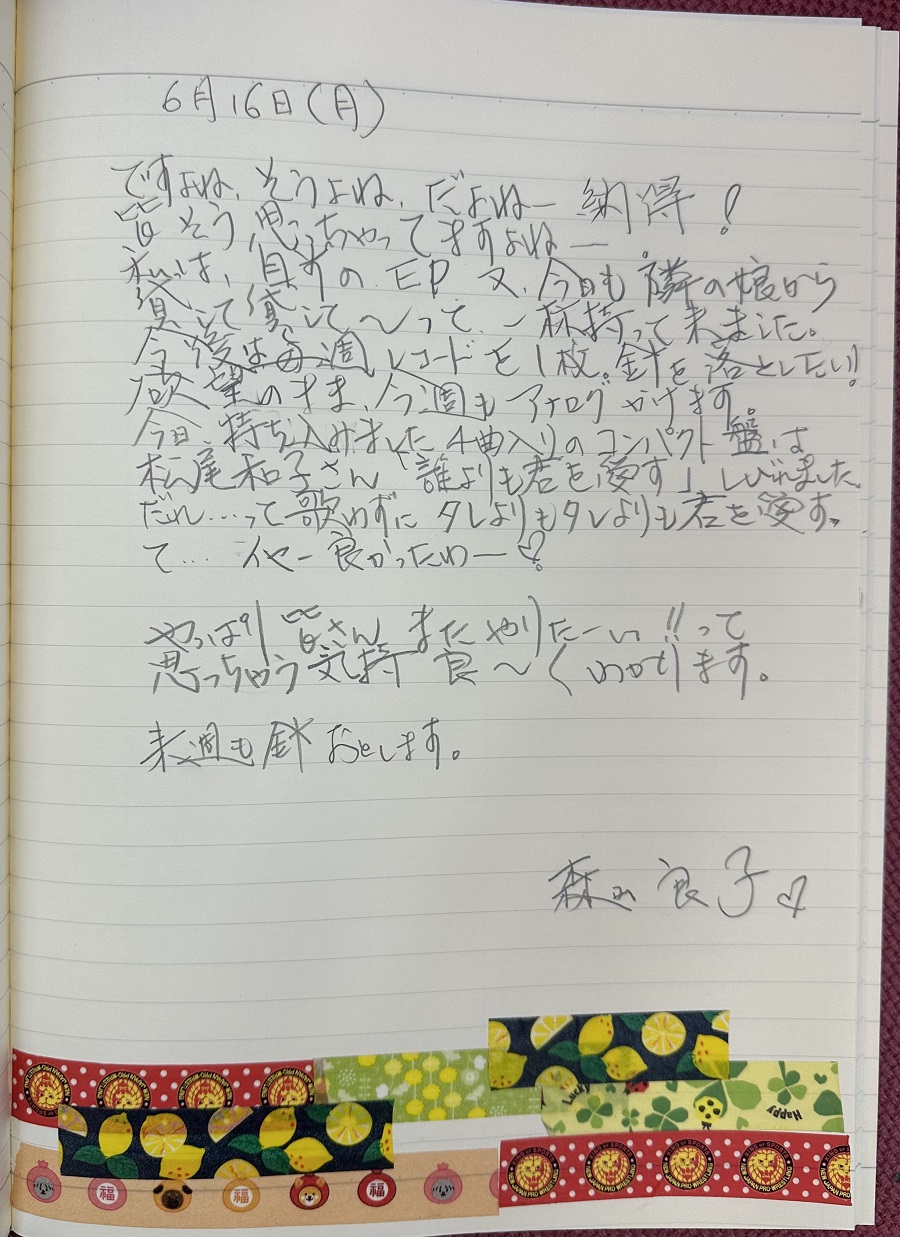 6月16日(月)
ですよね、そうよね、だよねー 納得!
皆そう思っちゃってますよねー。
私は、 の EP 又、今日も 隣の娘から
貸して貸して〜って、一杯持って来ました。
今後は毎週レコードを1枚。針を落としたい!
欲望のまま、今週もアナログかけます。
今日、持ち込みました4曲入りのコンパクト盤は
松尾和子さん「誰よりも君を愛す」しびれました。
だれ…って歌わずに タレよりもタレよりも君を愛す
て… イヤー良かったわー♡
やっぱり 皆さん またやりたーい!!って
思っちゃう気持 良〜くわかります。
来週も針おとします。
森山良子♡
NEW JAPAN PRO-WRESTLING
KING OF SPORTS
Lucky
Happy
福
福
福
KING OF SPORTS
NEW JAPAN PRO-WRESTLING